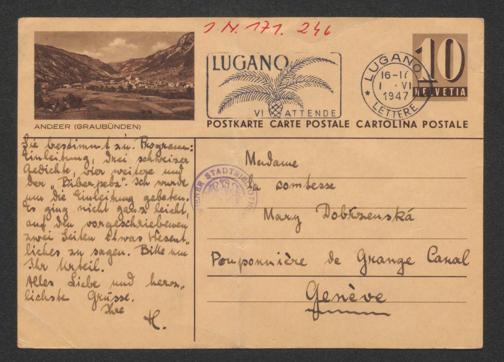 I N. 171. 246
ANDEER (GRAUBÜNDEN)
LUGANO
VI ATTENDE
LUGANO
1. VI
1947
LETTERE
10
HELVETIA
POSTKARTE CARTE POSTALE CARTOLINA POSTALE
Sie bestimmt z. Programm:
Einleitung, drei schweizer
Gedichte, vier weitere und
der
Ich wurde
um die Einleitung gebeten.
Es ging nicht ganz leicht,
auf den vorgeschriebenen
zwei Seiten etwas Wesent-
liches zu sagen. Bitte um
Ihr Urteil.
Alles Liebe und herz-
lichste Grüsse.
Ihre
H.
Madame
la comtesse
Mary Dobrzenská
Pouponnière de Grange Canal
Genève